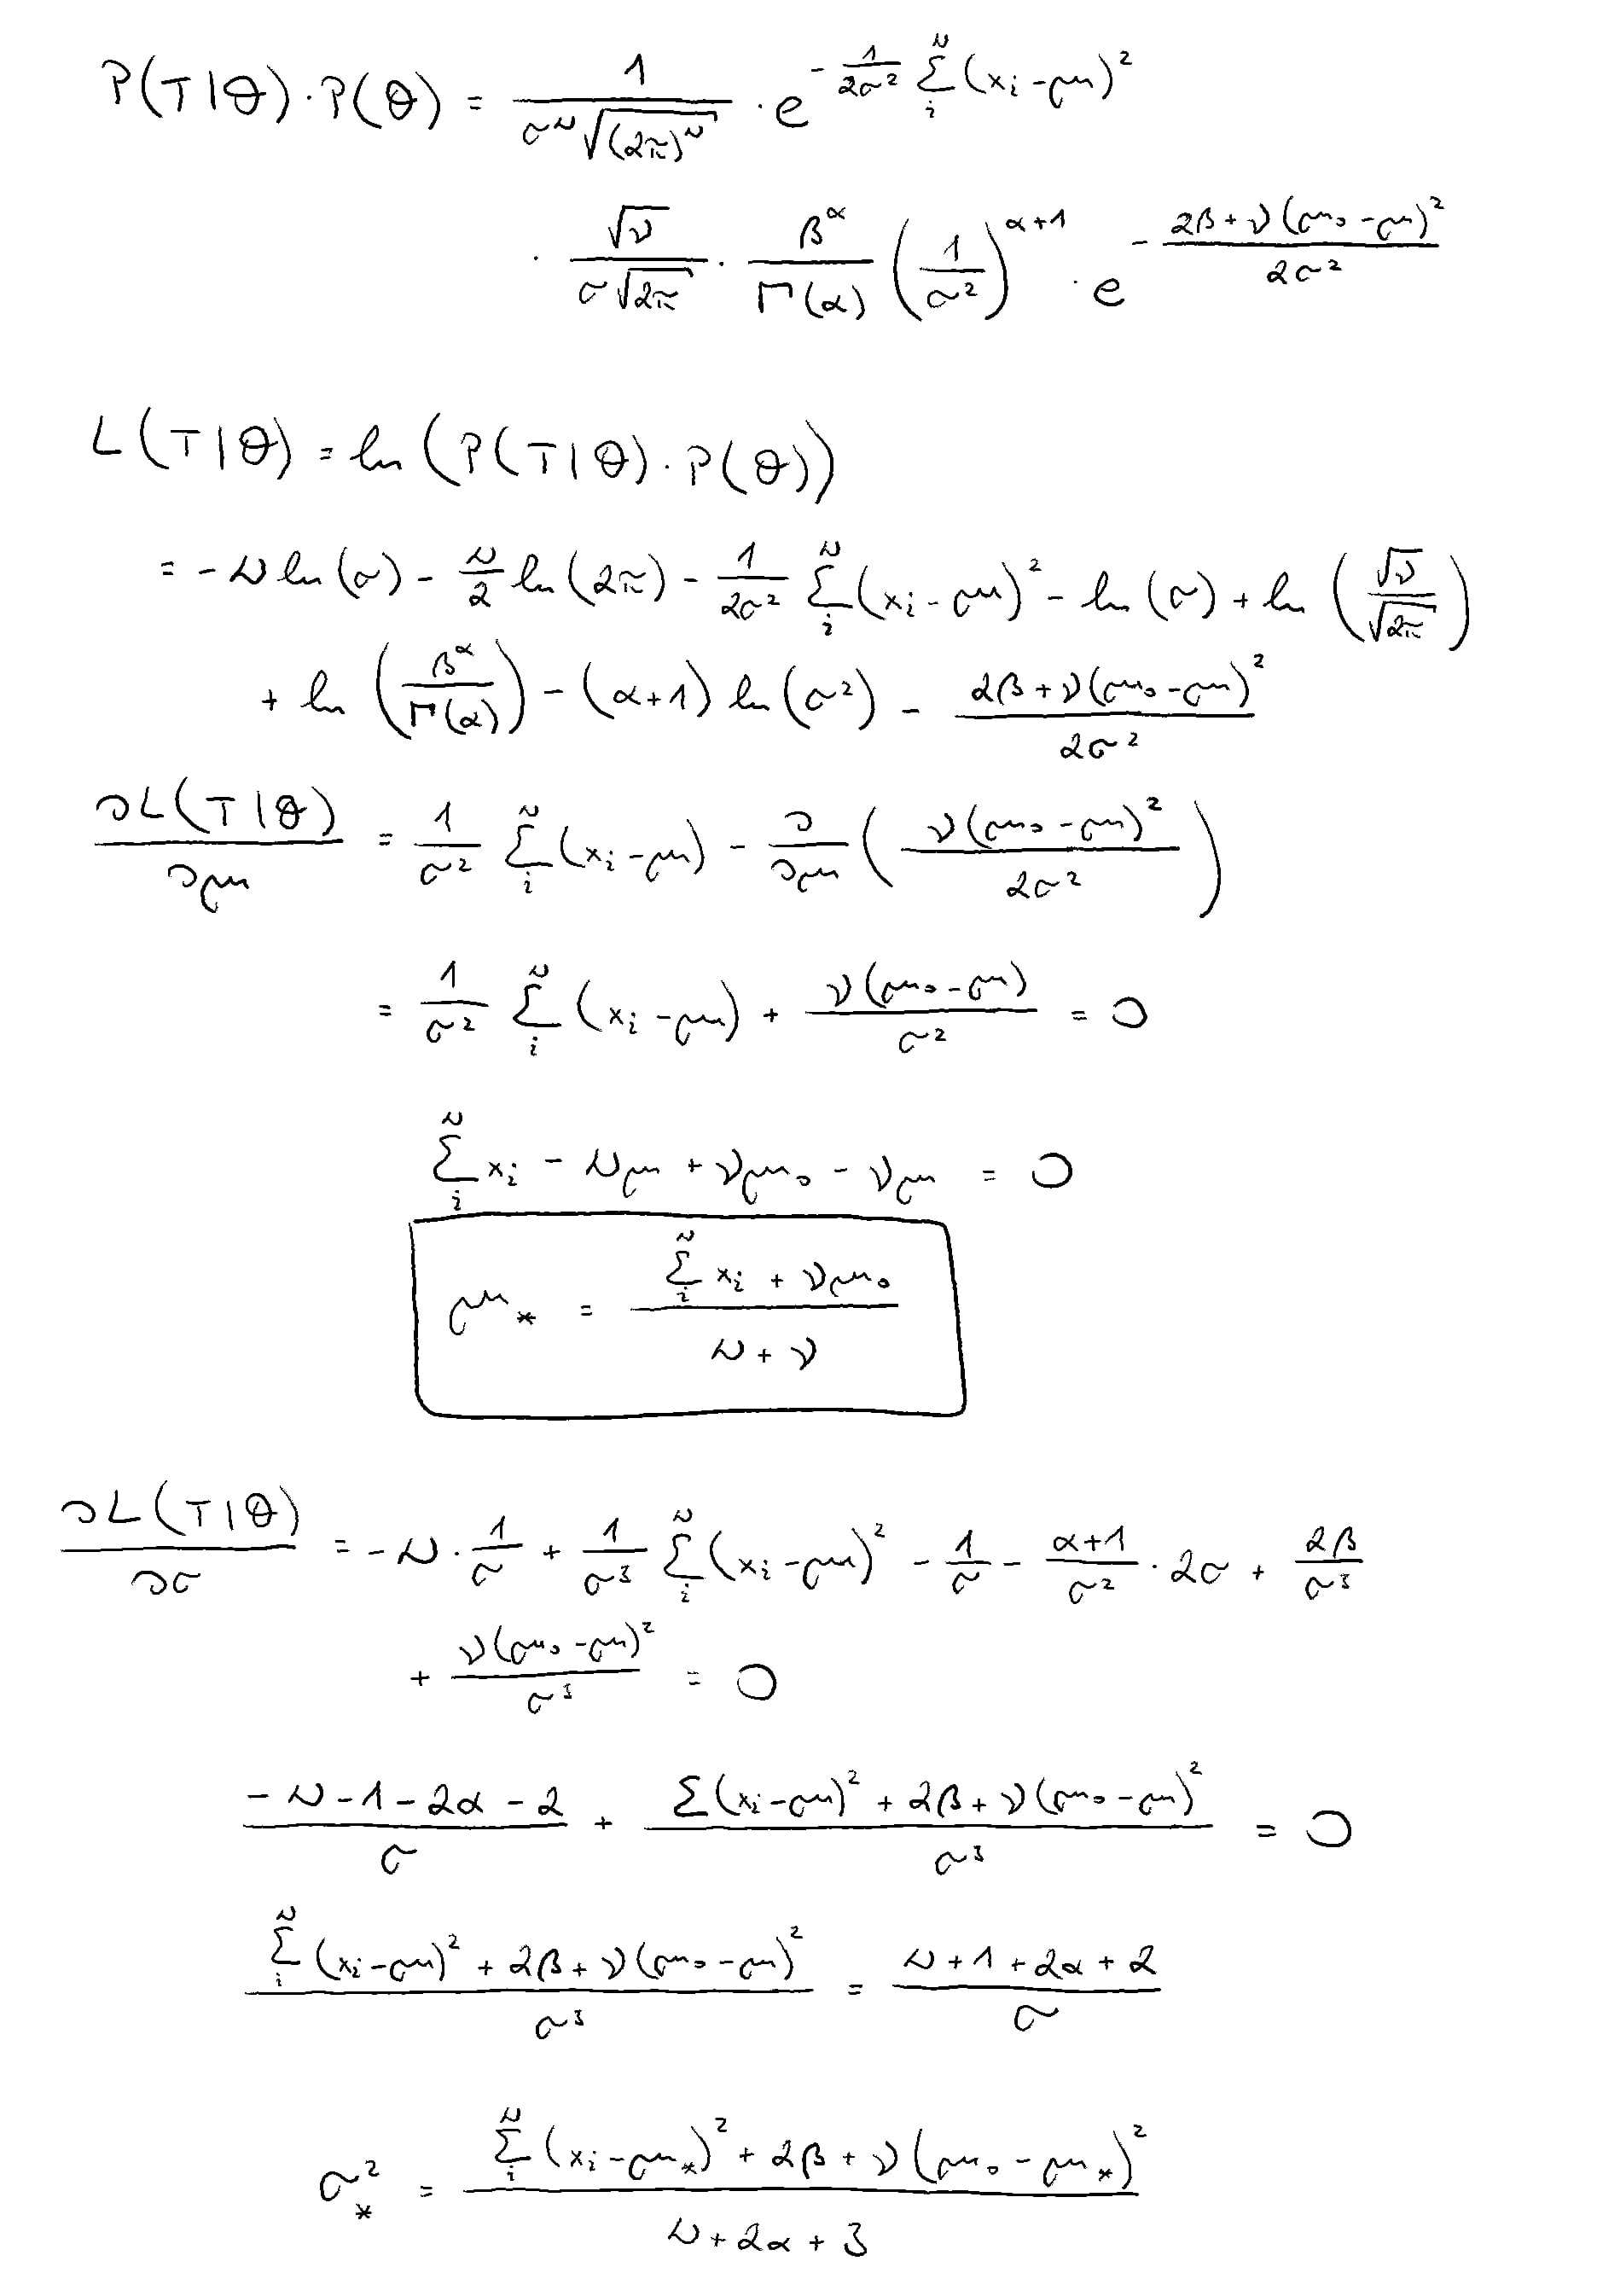 P(T|θ)·P(θ) = \frac{1}{σ^N \sqrt{(2π)^N}} · e^{-\frac{1}{2σ^2} \sum_i^N (x_i - μ)^2}
· \frac{\sqrt{ν}}{σ\sqrt{2π}} · \frac{β^α}{Γ(α)} \left(\frac{1}{σ^2}\right)^{α+1} · e^{-\frac{2β + ν(μ_0 - μ)^2}{2σ^2}}
L(T|θ) = ln(P(T|θ)·P(θ))
= -N ln(σ) - \frac{N}{2} ln(2π) - \frac{1}{2σ^2} \sum_i^N (x_i - μ)^2 - ln(σ) + ln\left(\frac{\sqrt{ν}}{\sqrt{2π}}\right)
+ ln\left(\frac{β^α}{Γ(α)}\right) - (α+1) ln(σ^2) - \frac{2β + ν(μ_0 - μ)^2}{2σ^2}
\frac{∂L(T|θ)}{∂μ} = \frac{1}{σ^2} \sum_i^N (x_i - μ) - \frac{∂}{∂μ}\left(\frac{ν(μ_0 - μ)^2}{2σ^2}\right)
= \frac{1}{σ^2} \sum_i^N (x_i - μ) + \frac{ν(μ_0 - μ)}{σ^2} = 0
\sum_i^N x_i - Nμ + νμ_0 - νμ = 0
μ_* = \frac{\sum_i^N x_i + νμ_0}{N + ν}
\frac{∂L(T|θ)}{∂σ} = -N · \frac{1}{σ} + \frac{1}{σ^3} \sum_i^N (x_i - μ)^2 - \frac{1}{σ} - \frac{α+1}{σ^2} · 2σ + \frac{2β}{σ^3}
+ \frac{ν(μ_0 - μ)^2}{σ^3} = 0
\frac{-N - 1 - 2α - 2}{σ} + \frac{Σ(x_i - μ)^2 + 2β + ν(μ_0 - μ)^2}{σ^3} = 0
\frac{\sum_i^N (x_i - μ)^2 + 2β + ν(μ_0 - μ)^2}{σ^3} = \frac{N + 1 + 2α + 2}{σ}
σ_*^2 = \frac{\sum_i^N (x_i - μ_*)^2 + 2β + ν(μ_0 - μ_*)^2}{N + 2α + 3}